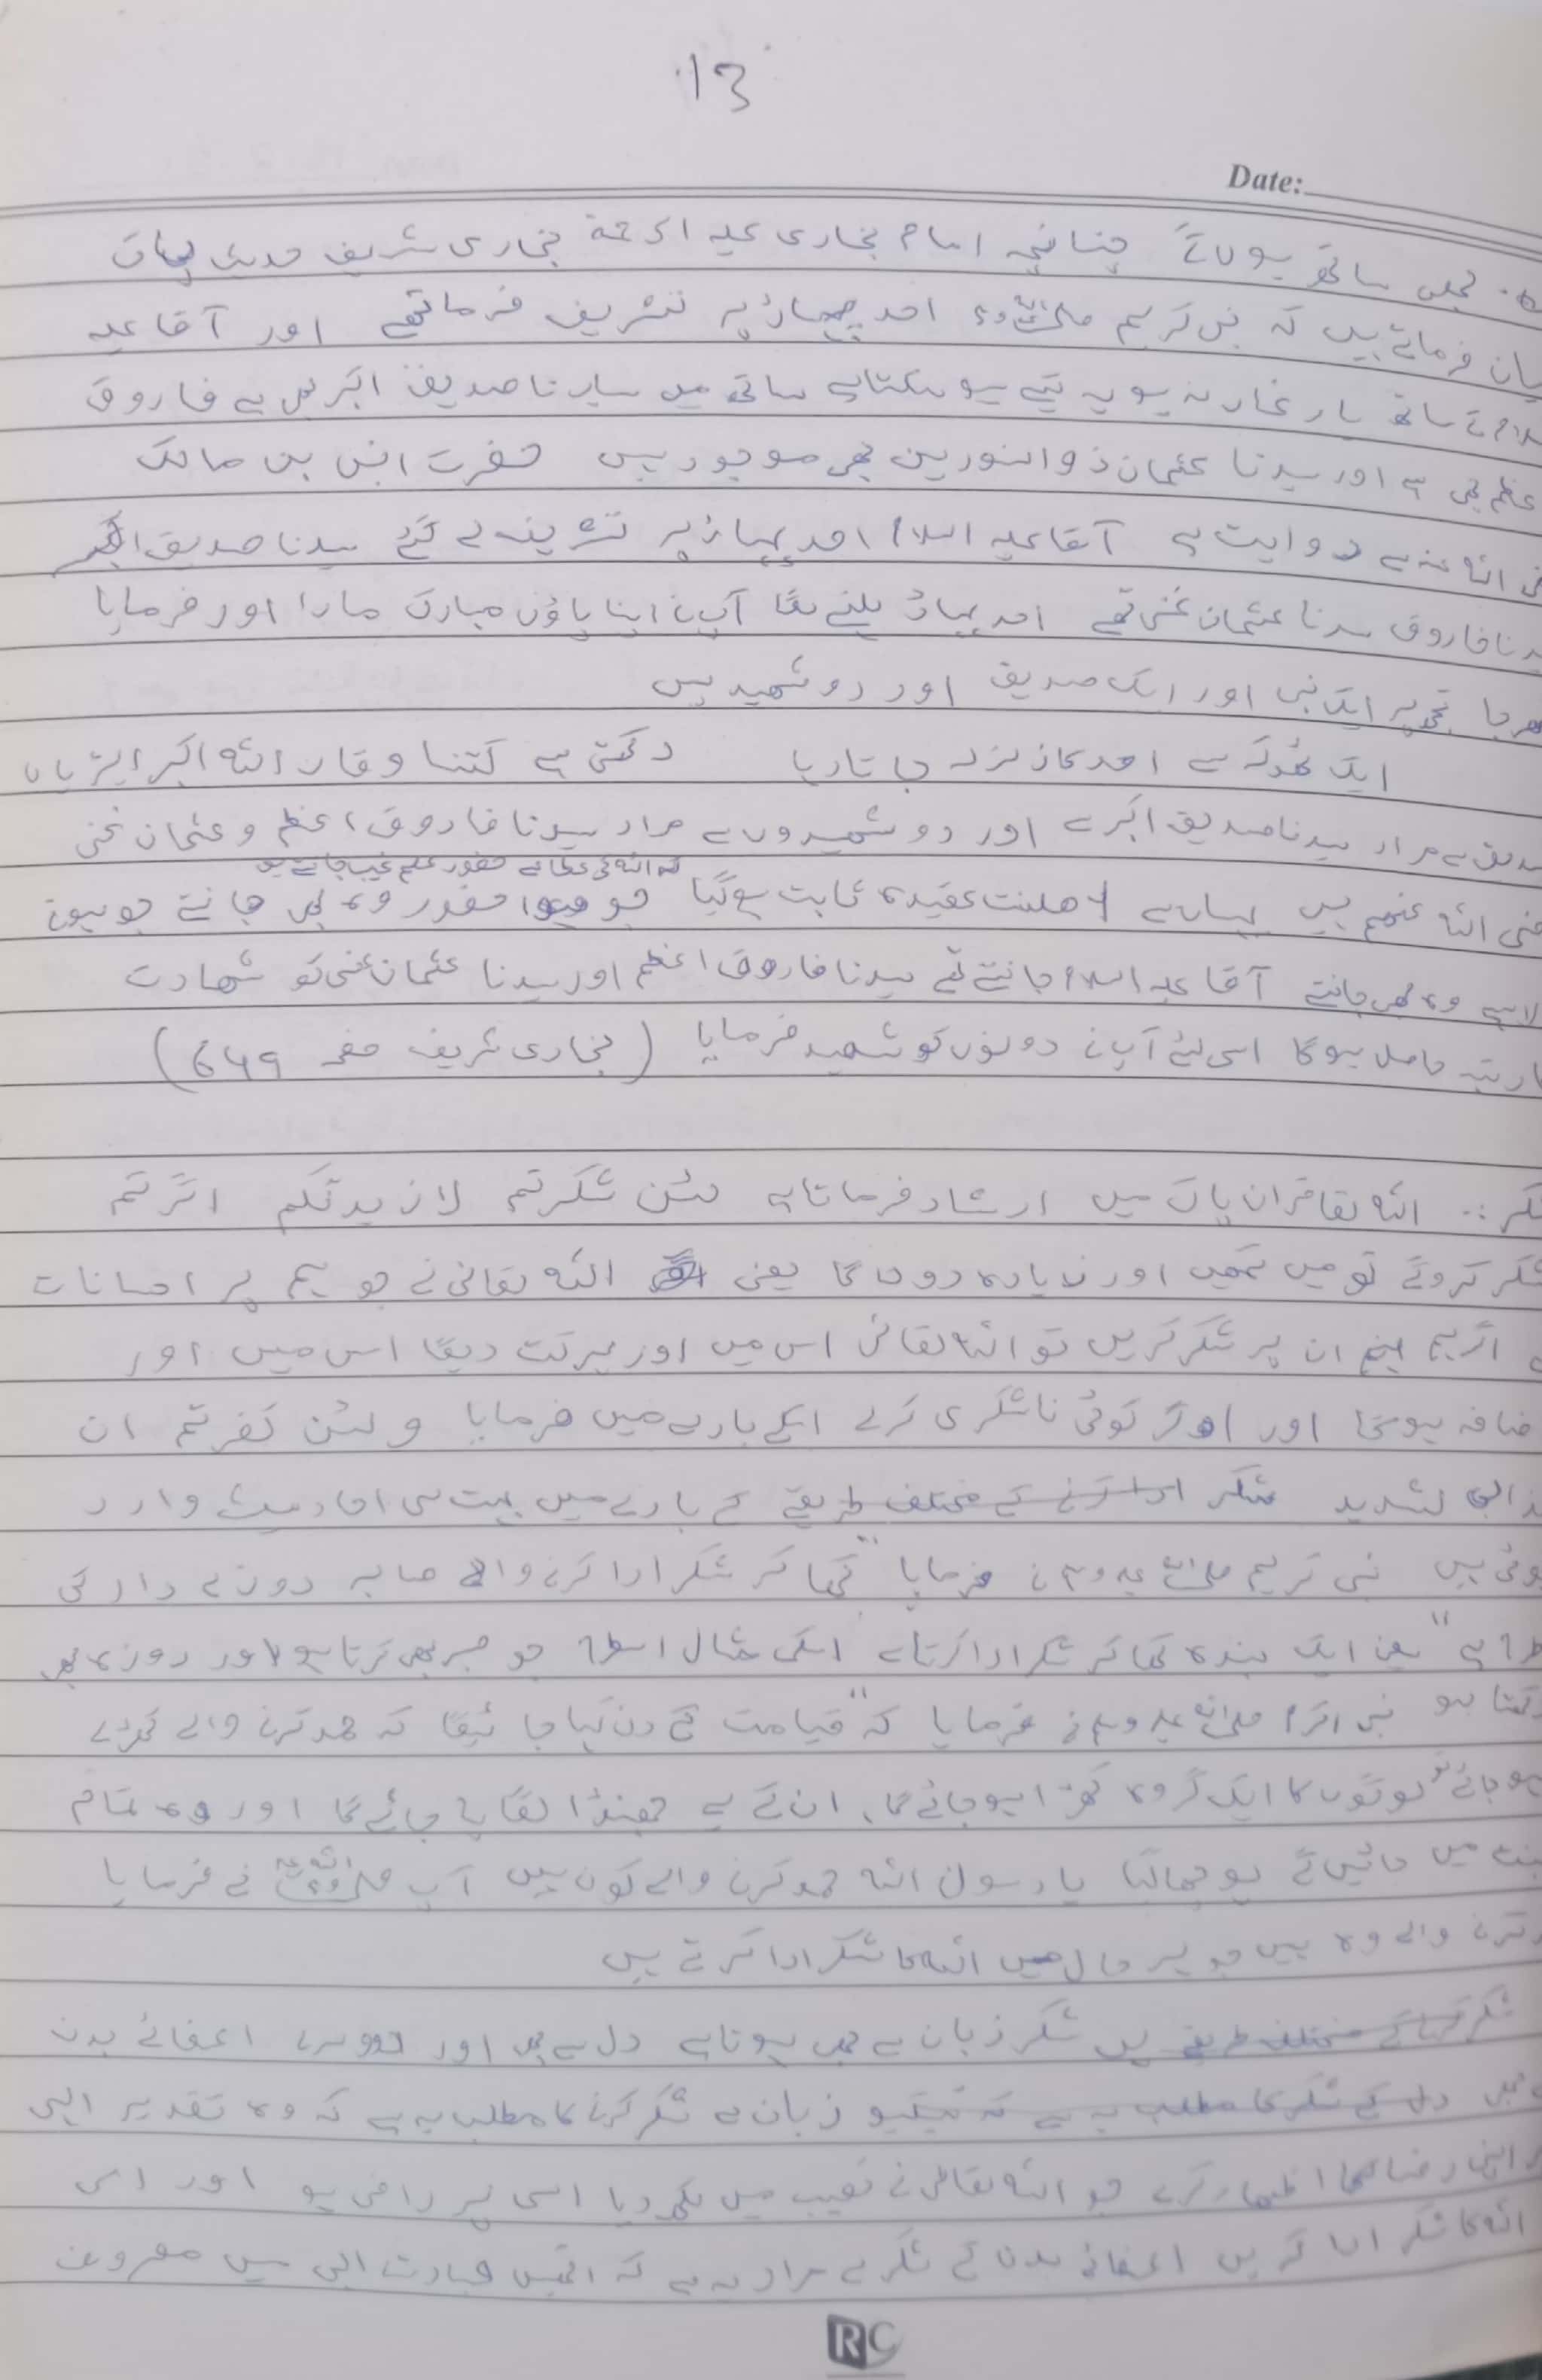 13
Date:
بھی ساتھ ہوں گے چنانچہ امام بخاری علیہ الرحمۃ بخاری شریف حدیث پاک
بیان فرماتے ہیں کہ نبی کریم صلی اللہ علیہ وسلم احد پہاڑ پر تشریف فرما تھے اور آقا علیہ
کے ساتھ یار غار نہ ہو یہ کیسے ہو سکتا ہے ساتھ میں سیدنا صدیق اکبر بھی ہے فاروق
عظم بھی ہے اور سیدنا عثمان ذوالنورین بھی موجود ہیں حضرت انس بن مالک
اللہ عنہ سے روایت ہے آقا علیہ السلام احد پہاڑ پر تشریف لے گئے سیدنا صدیق اکبر
سیدنا فاروق سیدنا عثمان غنی تھے احد پہاڑ ہلنے لگا آپ نے اپنا پاؤں مبارک مارا اور فرمایا
تجھ پر ایک نبی اور ایک صدیق اور دو شھید ہیں
ایک ٹھوکر سے احد کا زلزلہ جاتا رہا رکھتی ہے کتنا وقار اللہ اکبر ایڑیاں
صدیق سے مراد سیدنا صدیق اکبر ہے اور دو شھیدوں سے مراد سیدنا فاروق اعظم و عثمان غنی
کہ اللہ کی عطا سے حضور علم غیب جانتے ہیں
اللہ عنھم ہیں یہاں سے اھلسنت عقیدہ ثابت ہو گیا جو ہوا حضور وہ بھی جانتے جو ہونے
لا ہے وہ بھی جانتے آقا علیہ السلام جانتے تھے سیدنا فاروق اعظم اور سیدنا عثمان غنی کو شھادت
رتبہ حاصل ہوگا اسی لئے آپ نے دونوں کو شھید فرمایا (بخاری شریف صفحہ 649)
شکر :. اللہ تعا قران پاک میں ارشاد فرماتا ہے لئن شکرتم لازیدنکم اگر تم
شکر کرو گے تو میں تمھیں اور زیادہ دوں گا یعنی اللہ تعالیٰ نے جو ہم پر احسانات
اگر ہم ان پر شکر کریں تو اللہ تعالیٰ اس میں اور برکت دیگا اس میں اور
ضافہ ہوگا اور اگر کوئی ناشکری کرے اسکے بارے میں فرمایا ولئن کفرتم ان
عذابی لشدید شکر ادا کرنے کے مختلف طریقے کے بارے میں بہت سی احادیث وارد
ہوئی ہیں نبی کریم صلی اللہ علیہ وسلم نے فرمایا "کھا کر شکر ادا کرنے والا صابر روزے دار کی
طرح ہے" یعنی ایک بندہ کھا کر شکر ادا کرتا ہے اسکی مثال اسطرح جو صبر بھی کرتا ہو اور روزہ بھی
رکھتا ہو نبی اکرم صلی اللہ علیہ وسلم نے فرمایا کہ "قیامت کے دن کہا جائیگا کہ حمد کرنے والے کھڑے
ہو جائے تو لوگوں کا ایک گروہ کھڑا ہو جائے گا، ان کے لیے جھنڈا لگایا جائے گا اور وہ تمام
جنت میں جائیں گے پوچھا گیا یا رسول اللہ حمد کرنے والے کون ہیں آپ صلی اللہ علیہ وسلم نے فرمایا
کرنے والے وہ ہیں جو ہر حال میں اللہ کا شکر ادا کرتے ہیں
شکر کرنے کے مختلف طریقے ہیں شکر زبان سے بھی ہوتا ہے دل سے بھی اور دوسرے اعضائے بدن
بھی دل کے شکر کا مطلب یہ ہے کہ زبان سے شکر کرنے کا مطلب یہ ہے کہ وہ تقدیر الہی
اپنی رضا کا اظہار کرے جو اللہ تعالیٰ نے نصیب میں لکھ دیا اسی پر راضی ہو اور اس
اللہ کا شکر ادا کریں اعضائے بدن کے شکر سے مراد یہ ہے کہ انھیں عبادت الہی میں مصروف
RC